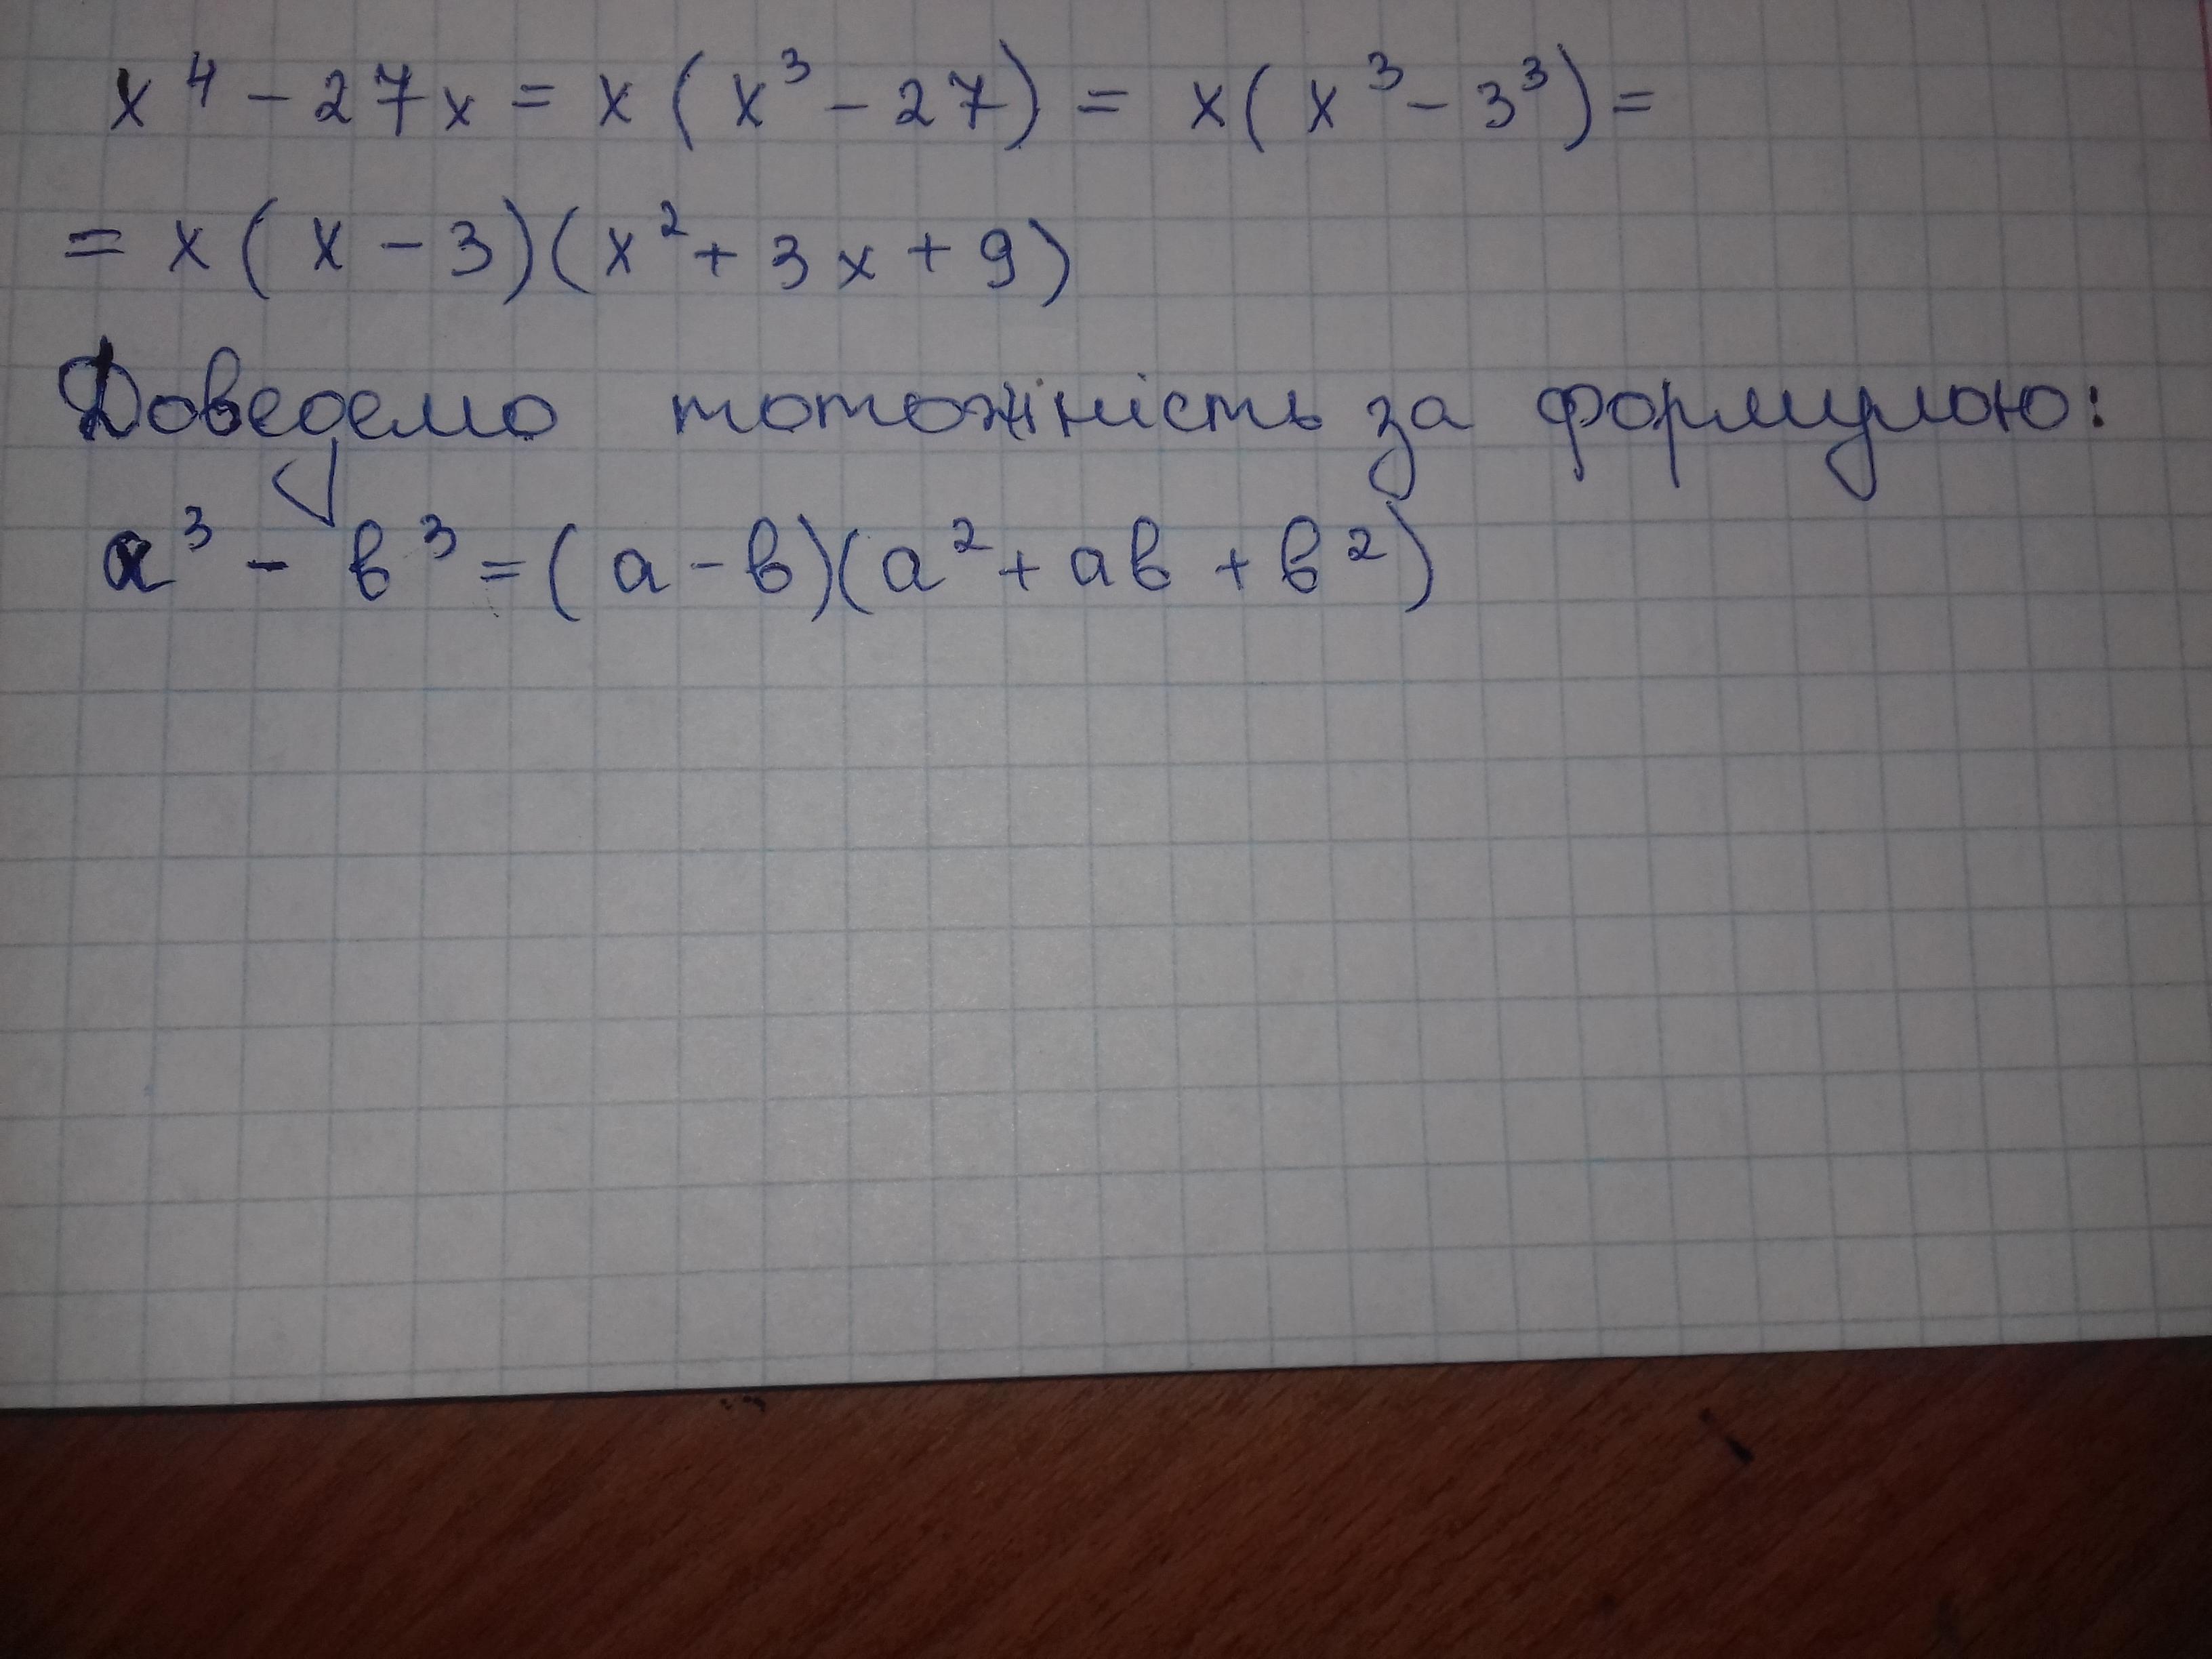 x⁴ - 27x = x(x³ - 27) = x(x³ - 3³) =
= x(x - 3)(x² + 3x + 9)
Доведемо тотожність за формулою:
a³ - в³ = (a - в)(a² + aв + в²)